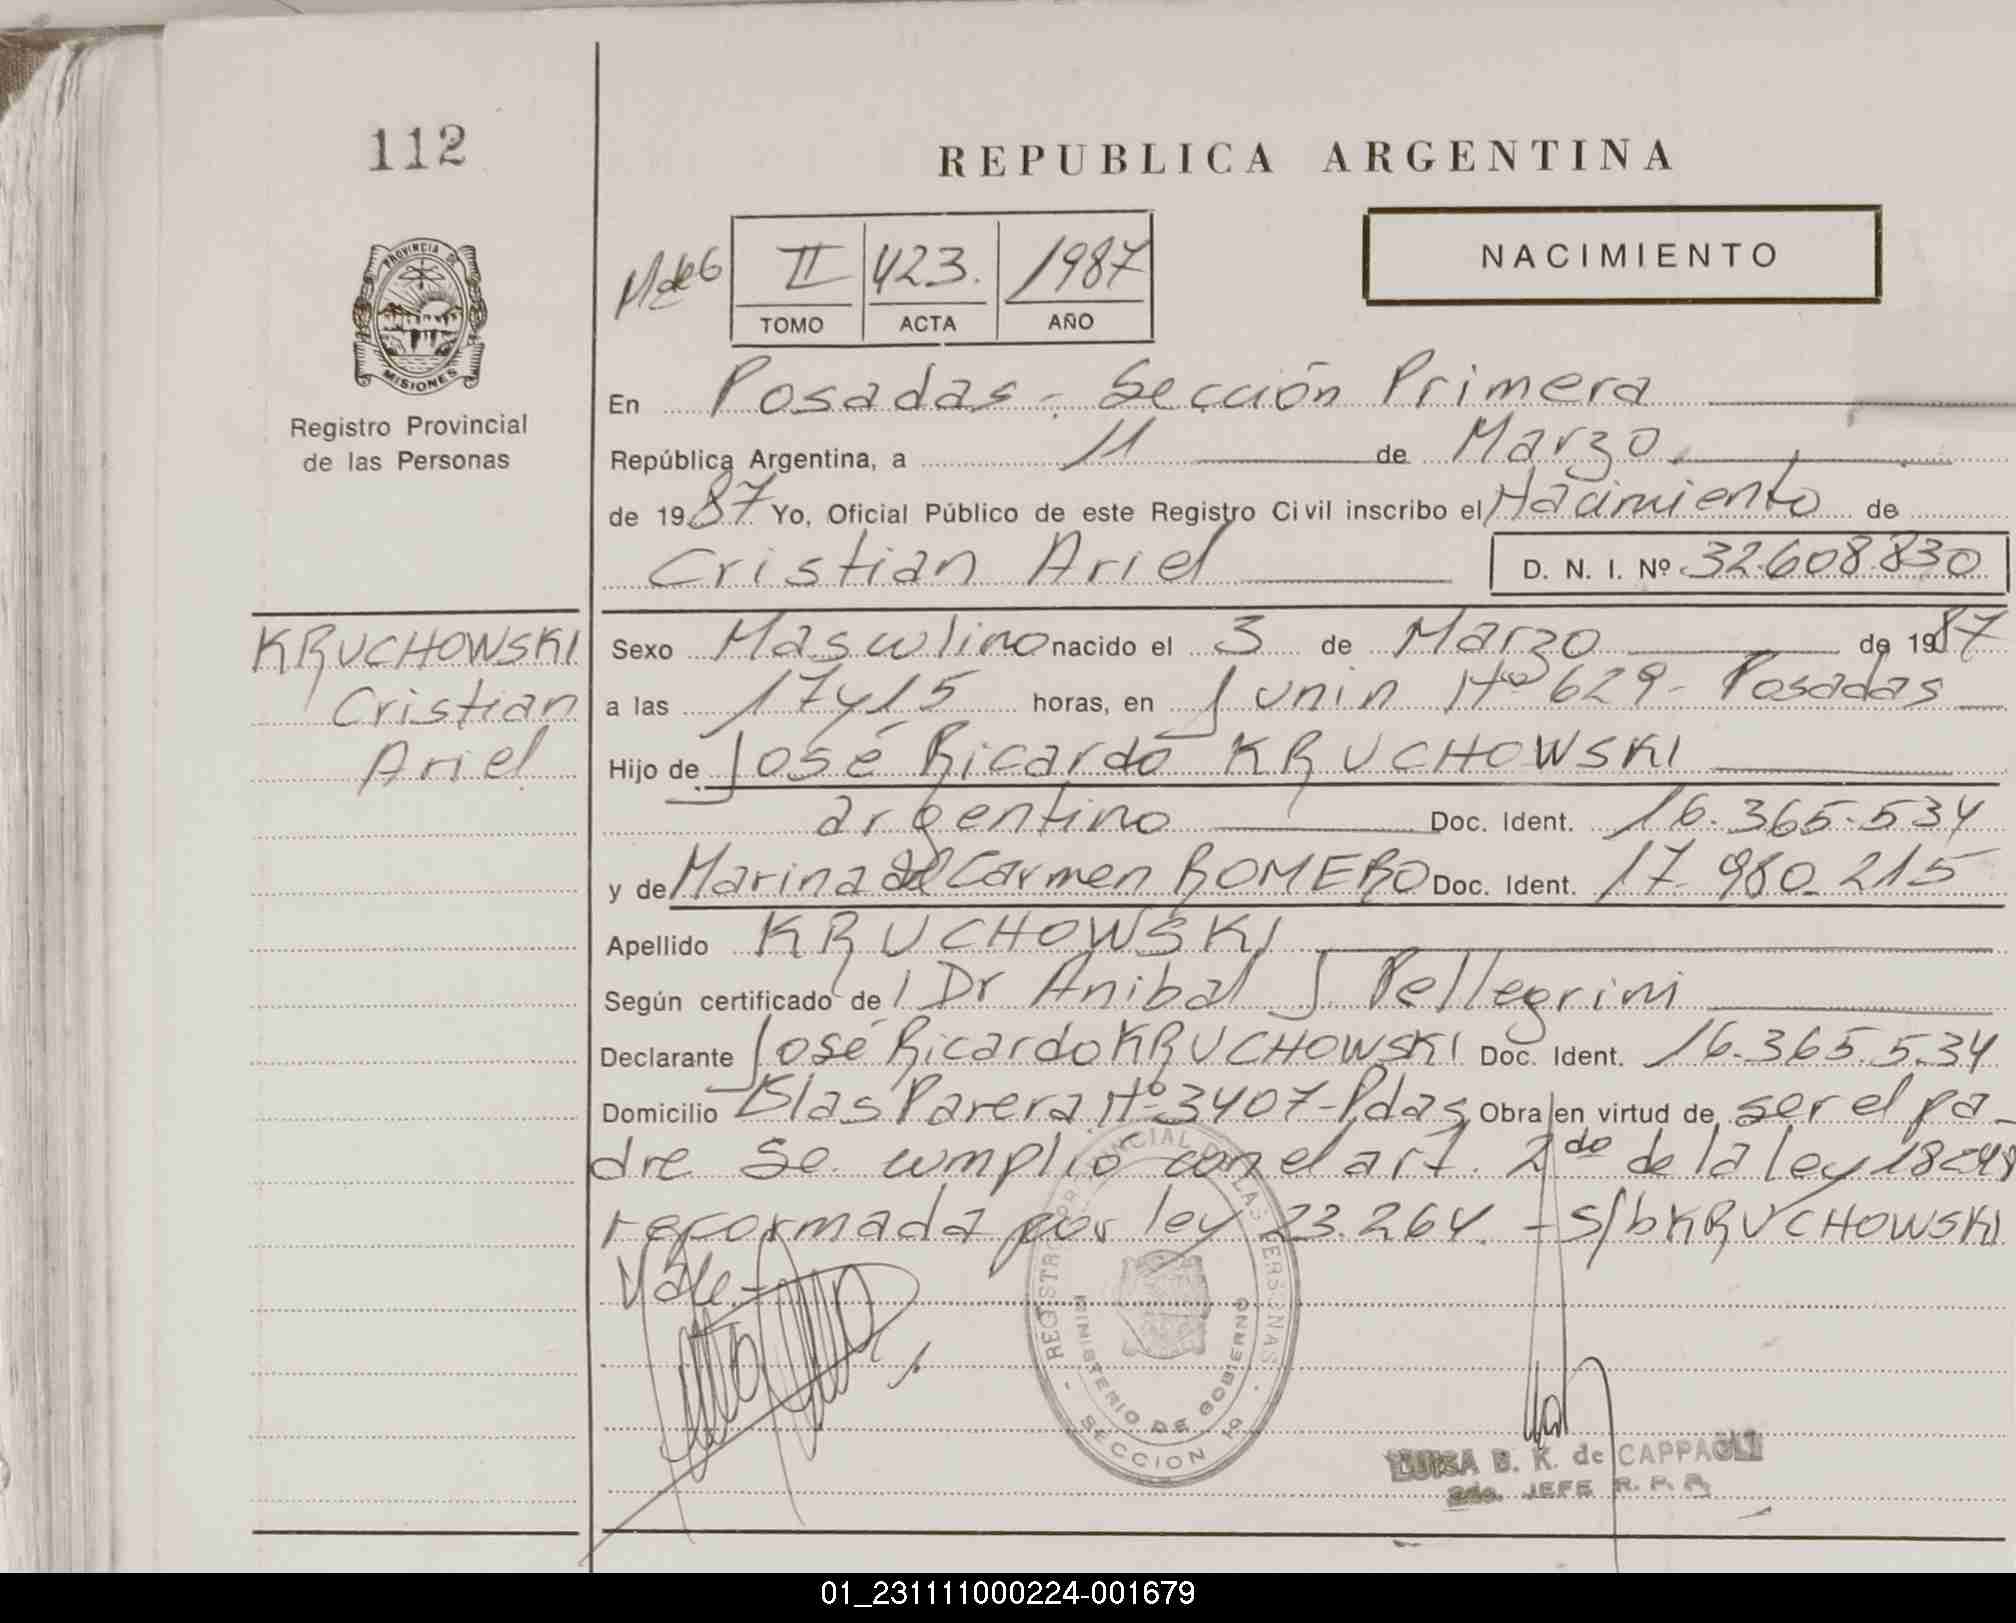 112
REPUBLICA ARGENTINA
NACIMIENTO
II 423. 1987
TOMO ACTA AÑO
PROVINCIA DE
MISIONES
Registro Provincial
de las Personas
En Posadas - Sección Primera
República Argentina, a 11 de Marzo
de 1987 Yo, Oficial Público de este Registro Civil inscribo el Nacimiento de
Cristian Ariel D. N. I. Nº 32.608.830
KRUCHOWSKI
Cristian
Ariel
Sexo Masculino nacido el 3 de Marzo de 1987
a las 17 y 15 horas, en Junin Nº 629 - Posadas
Hijo de José Ricardo KRUCHOWSKI
argentino Doc. Ident. 16.365.534
y de Marina del Carmen ROMERO Doc. Ident. 17.980.215
Apellido KRUCHOWSKI
Según certificado de Dr Anibal J Pellegrini
Declarante José Ricardo KRUCHOWSKI Doc. Ident. 16.365.534
Domicilio Blas Parera Nº 3407 - Pdas Obra en virtud de ser el pa-
dre Se cumplió con el art. 2do de la ley
reformada por ley 23.264. - s/b KRUCHOWSKI
Vale.-
REGISTRO PROVINCIAL DE LAS PERSONAS
MINISTERIO DE GOBIERNO
SECCION 1º
LUISA B. K. de CAPPAGLI
2do. JEFE R. P. P.
01_231111000224-001679